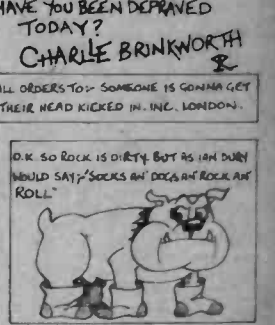 HAVE YOU BEEN DEPRAVED
TODAY?
CHARLIE BRINKWORTH
ALL ORDERS TO:- SOMEONE IS GONNA GET
THEIR HEAD KICKED IN. INC. LONDON.
O.K. SO ROCK IS DIRTY. BUT AS IAN DURY
WOULD SAY;-'SOCKS AN' DOGS AN' ROCK AN'
ROLL"